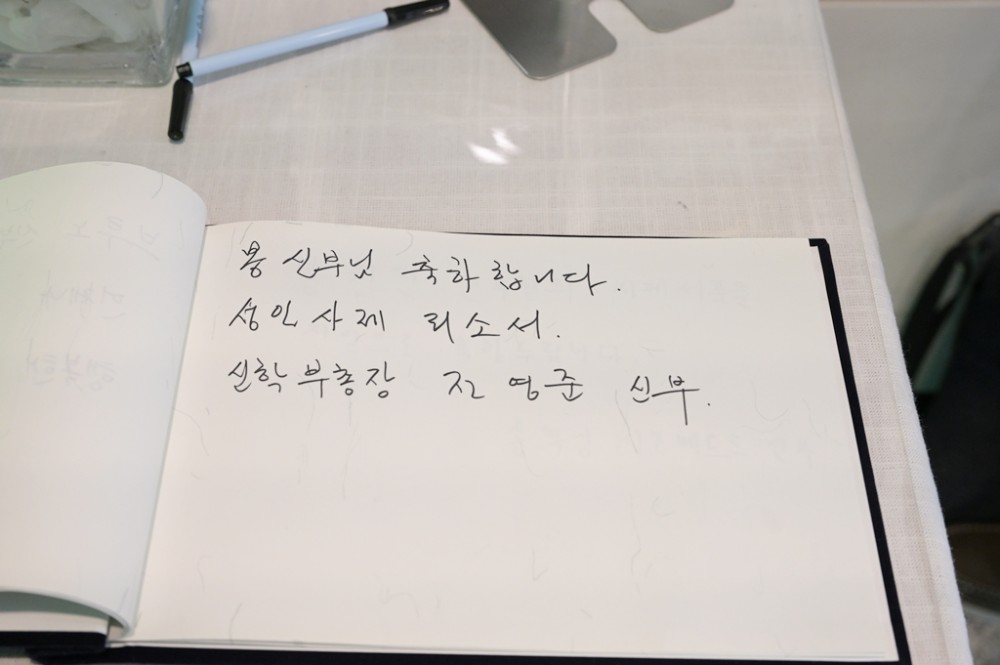 용 신부님 축하합니다.
성인 사제 되소서.
신학부총장 전영준 신부.